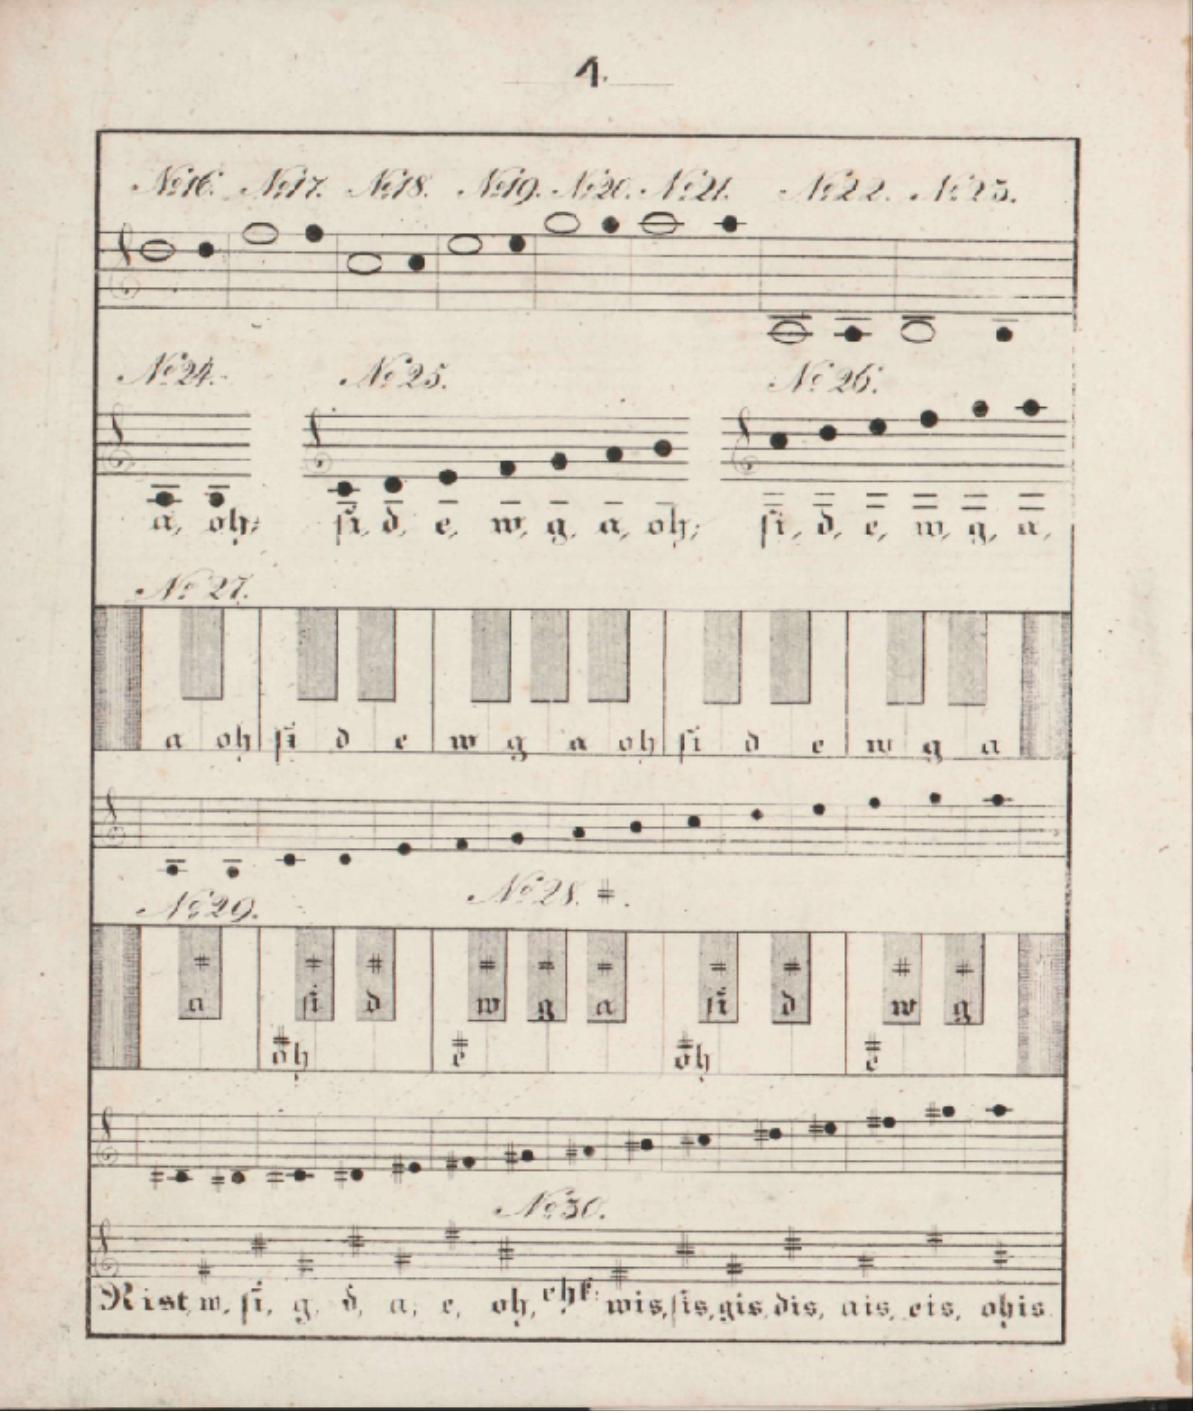 1.
No 16. No 17. No 18. No 19. No 20. No 21. No 22. No 23.
No 24. No 25. No 26.
a, oh; si, d, e, w, g, a, oh; si, d, e, w, g, a,
No 27.
a oh si d e w g a oh si d e w g a
No 28. #.
No 29.
# # # # # # # # # #
a si d w g a si d w g
# # # #
oh e oh e
No 30.
Rist, w, si, g, d, a, e, oh, ehk: wis, sis, gis, dis, ais, eis, ohis.